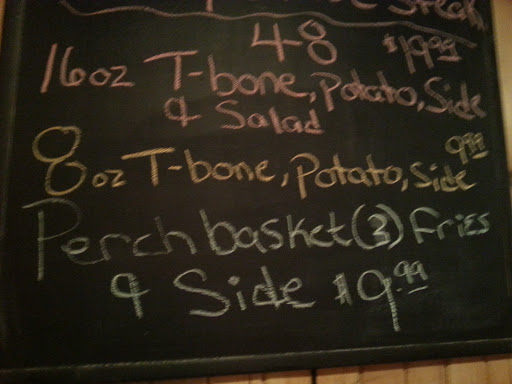 Steak
48 $19.99
16oz T-bone, Potato, Side
& Salad
8oz T-bone, Potato, Side 9.99
Perch basket (3) Fries
& Side $9.99